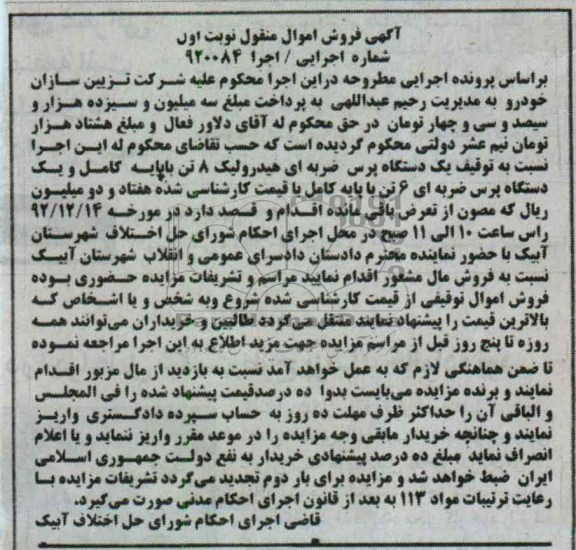 آگهی فروش اموال منقول نوبت اول
شماره اجرایی / اجرا ۹۲۰۰۸۴
براساس پرونده اجرایی مطروحه دراین اجرا محکوم علیه شرکت تزیین سازان
خودرو به مدیریت رحیم عبداللهی به پرداخت مبلغ سه میلیون و سیزده هزار و
سیصد و سی و چهار تومان در حق محکوم له آقای دلاور فعال و مبلغ هشتاد هزار
تومان نیم عشر دولتی محکوم گردیده است که حسب تقاضای محکوم له این اجرا
نسبت به توقیف یک دستگاه پرس ضربه ای هیدرولیک ۸ تن باپایه کامل و یک
دستگاه پرس ضربه ای ۶ تن با پایه کامل با قیمت کارشناسی شده هفتاد و دو میلیون
ریال که مصون از تعرض باقی مانده اقدام و قصد دارد در مورخه ۹۲/۱۲/۱۴
راس ساعت ۱۰ الی ۱۱ صبح در محل اجرای احکام شورای حل اختلاف شهرستان
آبیک با حضور نماینده محترم دادستان دادسرای عمومی و انقلاب شهرستان آبیک
نسبت به فروش مال مشغور اقدام نمایند مراسم و تشریفات مزایده حضوری بوده
فروش اموال توقیفی از قیمت کارشناسی شده شروع وبه شخص و یا اشخاص که
بالاترین قیمت را پیشنهاد نمایند منتقل می گردد طالبین و خریداران می‌توانند همه
روزه تا پنج روز قبل از مراسم مزایده جهت مزید اطلاع به این اجرا مراجعه نموده
تا ضمن هماهنگی لازم که به عمل خواهد آمد نسبت به بازدید از مال مزبور اقدام
نمایند و برنده مزایده می‌بایست بدوا ده درصدقیمت پیشنهاد شده را فی المجلس
و الباقی آن را حداکثر ظرف مهلت ده روز به حساب سپرده دادگستری واریز
نمایند و چنانچه خریدار مابقی وجه مزایده را در موعد مقرر واریز ننماید و یا اعلام
انصراف نماید مبلغ ده درصد پیشنهادی خریدار به نفع دولت جمهوری اسلامی
ایران ضبط خواهد شد و مزایده برای بار دوم تجدید می‌گردد تشریفات مزایده با
رعایت ترتیبات مواد ۱۱۳ به بعد از قانون اجرای احکام مدنی صورت می‌گیرد.
قاضی اجرای احکام شورای حل اختلاف آبیک